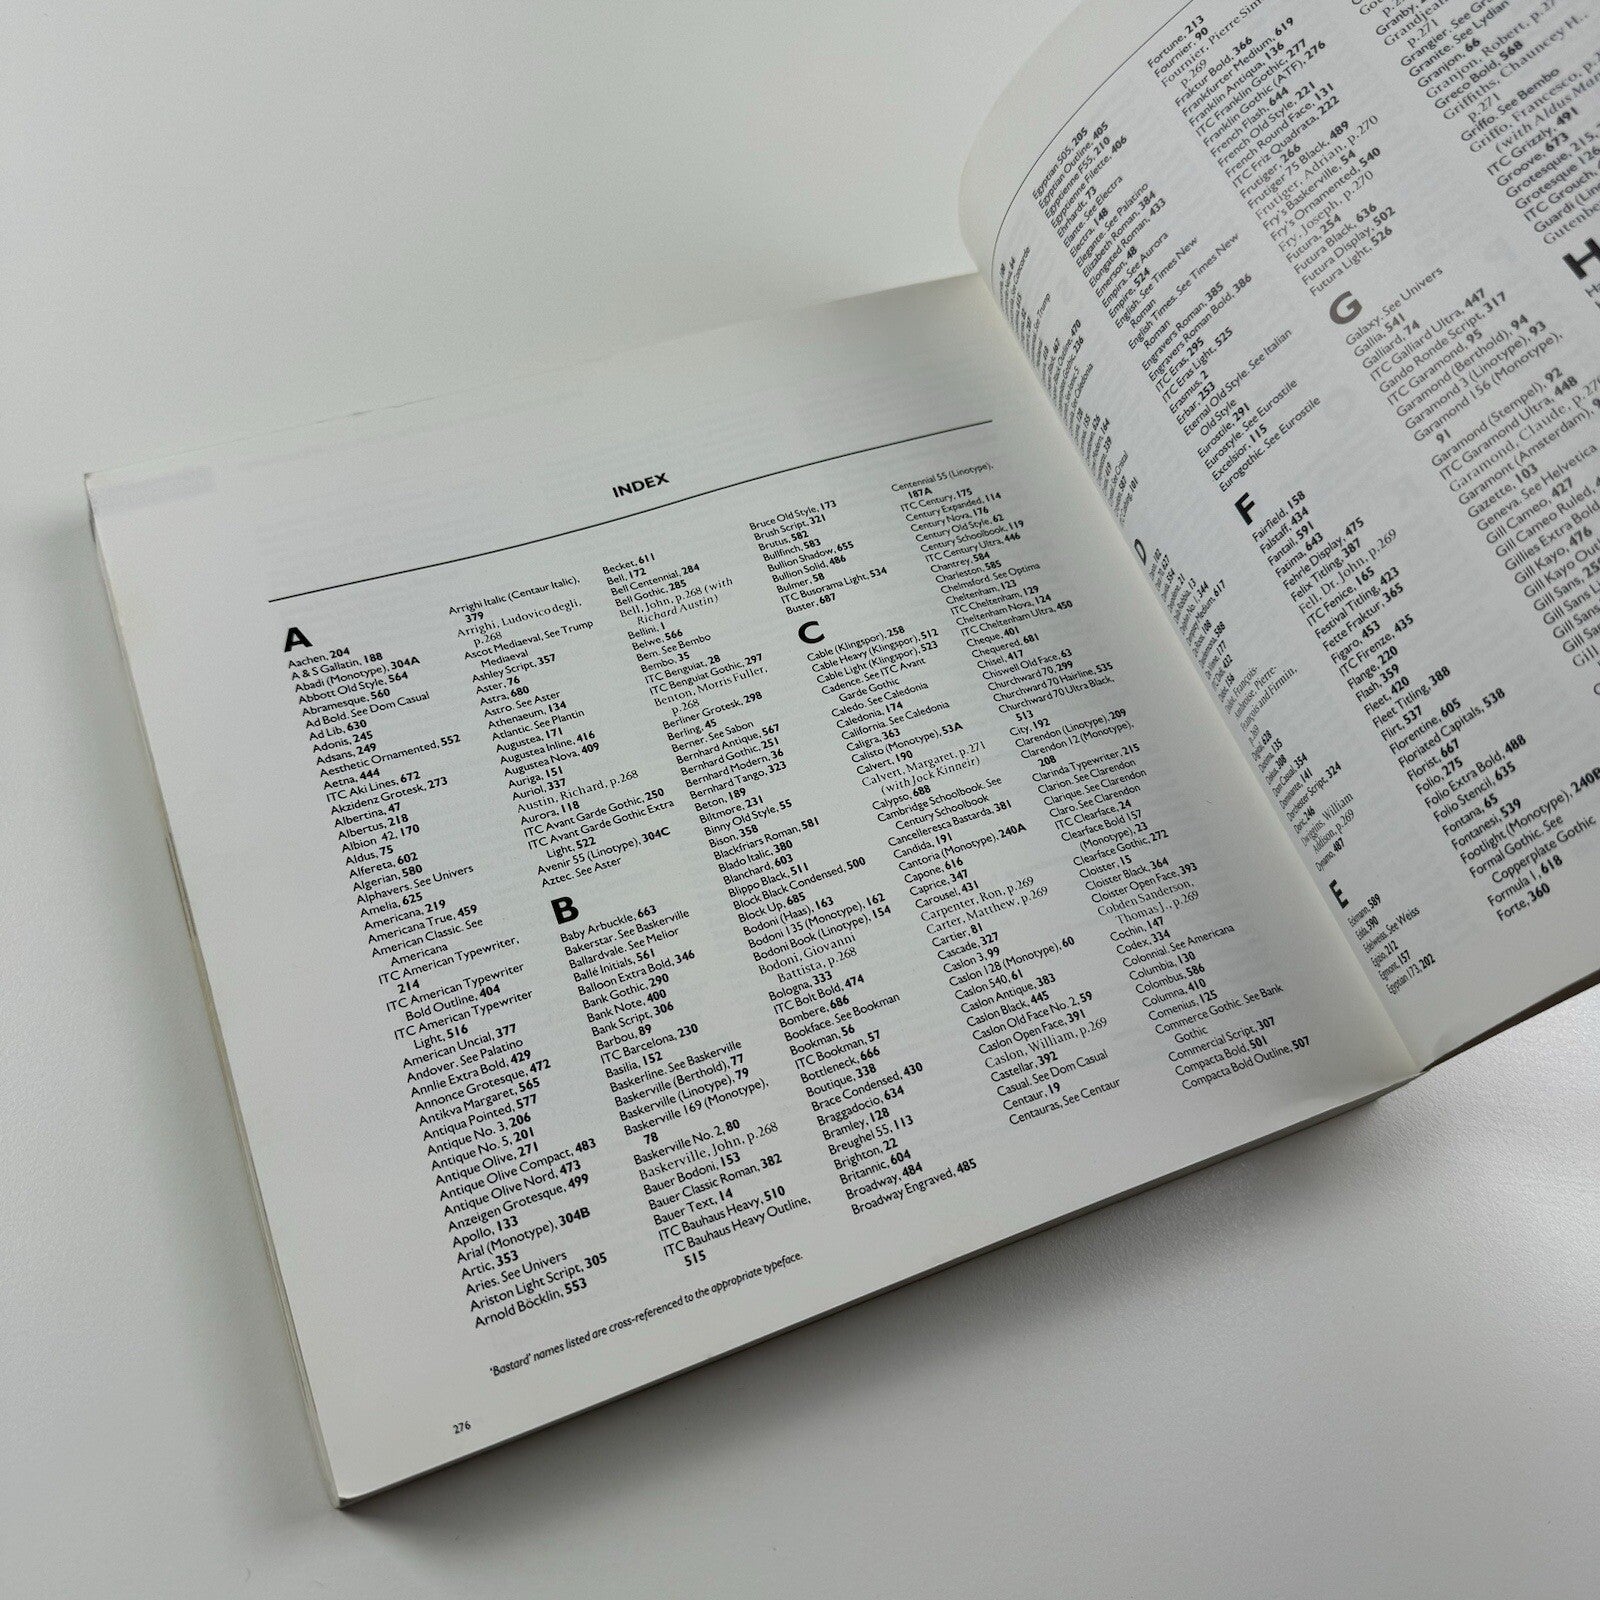 INDEX
A
Aachen, 204
A & S Gallatin, 188
Abadi (Monotype), 304A
Abbott Old Style, 564
Abramesque, 560
Ad Bold. See Dom Casual
Ad Lib, 630
Adonis, 245
Adsans, 249
Aesthetic Ornamented, 552
Aetna, 444
ITC Aki Lines, 672
Akzidenz Grotesk, 273
Albertina, 47
Albertus, 218
Albion 42, 170
Aldus, 75
Alfereta, 602
Algerian, 580
Alphavers. See Univers
Amelia, 625
Americana, 219
Americana True, 459
American Classic. See
Americana
ITC American Typewriter,
214
ITC American Typewriter
Bold Outline, 404
ITC American Typewriter
Light, 516
American Uncial, 377
Andover. See Palatino
Annlie Extra Bold, 429
Annonce Grotesque, 472
Antikva Margaret, 565
Antiqua Pointed, 577
Antique No. 3, 206
Antique No. 5, 201
Antique Olive, 271
Antique Olive Compact, 483
Antique Olive Nord, 473
Anzeigen Grotesque, 499
Apollo, 133
Arial (Monotype), 304B
Artic, 353
Aries. See Univers
Ariston Light Script, 305
Arnold Böcklin, 553
Arrighi Italic (Centaur Italic),
379
Arrighi, Ludovico degli,
p.268
Ascot Mediaeval, See Trump
Mediaeval
Ashley Script, 357
Aster, 76
Astra, 680
Astro. See Aster
Athenaeum, 134
Atlantic. See Plantin
Augustea, 171
Augustea Inline, 416
Augustea Nova, 409
Auriga, 151
Auriol, 337
Austin, Richard, p.268
Aurora, 118
ITC Avant Garde Gothic, 250
ITC Avant Garde Gothic Extra
Light, 522
Avenir 55 (Linotype), 304C
Aztec. See Aster
B
Baby Arbuckle, 663
Bakerstar. See Baskerville
Ballardvale. See Melior
Ballé Initials, 561
Balloon Extra Bold, 346
Bank Gothic, 290
Bank Note, 400
Bank Script, 306
Barbou, 89
ITC Barcelona, 230
Basilia, 152
Baskerline. See Baskerville
Baskerville (Berthold), 77
Baskerville (Linotype), 79
Baskerville 169 (Monotype),
78
Baskerville No. 2, 80
Baskerville, John, p.268
Bauer Bodoni, 153
Bauer Classic Roman, 382
Bauer Text, 14
ITC Bauhaus Heavy, 510
ITC Bauhaus Heavy Outline,
515
Becket, 611
Bell, 172
Bell Centennial, 284
Bell Gothic, 285
Bell, John, p.268 (with
Richard Austin)
Bellini, 1
Belwe, 566
Bem. See Bembo
Bembo, 35
ITC Benguiat, 28
ITC Benguiat Gothic, 297
Benton, Morris Fuller,
p.268
Berliner Grotesk, 298
Berling, 45
Berner. See Sabon
Bernhard Antique, 567
Bernhard Gothic, 251
Bernhard Modern, 36
Bernhard Tango, 323
Beton, 189
Biltmore, 231
Binny Old Style, 55
Bison, 358
Blackfriars Roman, 581
Blado Italic, 380
Blanchard, 603
Blippo Black, 511
Block Black Condensed, 500
Block Up, 685
Bodoni (Haas), 163
Bodoni 135 (Monotype), 162
Bodoni Book (Linotype), 154
Bodoni, Giovanni
Battista, p.268
Bologna, 333
ITC Bolt Bold, 474
Bombere, 686
Bookface. See Bookman
Bookman, 56
ITC Bookman, 57
Bottleneck, 666
Boutique, 338
Brace Condensed, 430
Braggadocio, 634
Bramley, 128
Breughel 55, 113
Brighton, 22
Britannic, 604
Broadway, 484
Broadway Engraved, 485
Bruce Old Style, 173
Brush Script, 321
Brutus, 582
Bullfinch, 583
Bullion Shadow, 655
Bullion Solid, 486
Bulmer, 58
ITC Busorama Light, 534
Buster, 687
C
Cable (Klingspor), 258
Cable Heavy (Klingspor), 512
Cable Light (Klingspor), 523
Cadence. See ITC Avant
Garde Gothic
Caledo. See Caledonia
Caledonia, 174
California. See Caledonia
Caligra, 363
Calisto (Monotype), 53A
Calvert, 190
Calvert, Margaret, p.271
(with Jock Kinneir)
Calypso, 688
Cambridge Schoolbook. See
Century Schoolbook
Cancelleresca Bastarda, 381
Candida, 191
Cantoria (Monotype), 240A
Capone, 616
Caprice, 347
Carousel, 431
Carpenter, Ron, p.269
Carter, Matthew, p.269
Cartier, 81
Cascade, 327
Caslon 3, 99
Caslon 128 (Monotype), 60
Caslon 540, 61
Caslon Antique, 383
Caslon Black, 445
Caslon Old Face No. 2, 59
Caslon Open Face, 391
Caslon, William, p.269
Castellar, 392
Casual. See Dom Casual
Centaur, 19
Centauras, See Centaur
Centennial 55 (Linotype),
187A
ITC Century, 175
Century Expanded, 114
Century Nova, 176
Century Old Style, 62
Century Schoolbook, 119
ITC Century Ultra, 446
Chantrey, 584
Charleston, 585
Chelmsford. See Optima
Cheltenham, 123
ITC Cheltenham, 129
Cheltenham Nova, 124
ITC Cheltenham Ultra, 450
Cheque, 401
Chequered, 681
Chisel, 417
Chiswell Old Face, 63
Churchward 70, 299
Churchward 70 Hairline, 535
Churchward 70 Ultra Black,
513
City, 192
Clarendon (Linotype), 209
Clarendon 12 (Monotype),
208
Clarinda Typewriter, 215
Clarion. See Clarendon
Clarique. See Clarendon
Claro. See Clarendon
ITC Clearface, 24
Clearface Bold 157
(Monotype), 23
Clearface Gothic, 272
Cloister, 15
Cloister Black, 364
Cloister Open Face, 393
Cobden Sanderson,
Thomas J., p.269
Cochin, 147
Codex, 334
Colonnial. See Americana
Columbia, 130
Columbus, 586
Columna, 410
Comenius, 125
Commerce Gothic. See Bank
Gothic
Commercial Script, 307
Compacta Bold, 501
Compacta Bold Outline, 507
'Bastard' names listed are cross-referenced to the appropriate typeface.
276
D
Dynamo, 487
E
Edelweiss. See Weiss
Egizio, 212
Egmont, 157
Egyptian 173, 202
Egyptian 505, 205
Egyptian Outline, 405
Egyptienne F55, 210
Egyptienne Filette, 406
Ehrhardt, 73
Elante. See Electra
Electra, 148
Elegante. See Palatino
Elizabeth Roman, 384
Elongated Roman, 433
Emerson, 48
Empira. See Aurora
Empire, 524
English. See Times New
Roman
English Times. See Times New
Roman
Engravers Roman, 385
Engravers Roman Bold, 386
ITC Eras, 295
ITC Eras Light, 525
Erasmus, 2
Erbar, 253
Eternal Old Style. See Italian
Old Style
Eurostile, 291
Eurostyle. See Eurostile
Excelsior, 115
Eurogothic. See Eurostile
F
Fairfield, 158
Falstaff, 434
Fantail, 591
Fatima, 643
Fehrle Display, 475
Felix Titling, 387
Fell, Dr. John, p.269
ITC Fenice, 165
Festival Titling, 423
Fette Fraktur, 365
Figaro, 453
ITC Firenze, 435
Flange, 220
Flash, 359
Fleet, 420
Fleet Titling, 388
Flirt, 537
Florentine, 605
Floriated Capitals, 538
Florist, 667
Folio, 275
Folio Extra Bold, 488
Folio Stencil, 635
Fontana, 65
Fontanesi, 539
Footlight (Monotype), 240B
Formal Gothic. See
Copperplate Gothic
Formula 1, 618
Forte, 360
Fortune, 213
Fournier, 90
Fournier, Pierre Sim
p.269
Fraktur Bold, 366
Frankfurter Medium, 619
Franklin Antiqua, 136
ITC Franklin Gothic, 277
Franklin Gothic (ATF), 276
French Flash, 644
French Old Style, 221
French Round Face, 131
ITC Friz Quadrata, 222
Frutiger, 266
Frutiger 75 Black, 489
Frutiger, Adrian, p.270
Fry's Baskerville, 54
Fry's Ornamented, 540
Fry, Joseph, p.270
Futura, 254
Futura Black, 636
Futura Display, 502
Futura Light, 526
G
Galaxy. See Univers
Gallia, 541
Galliard, 74
ITC Galliard Ultra, 447
Gando Ronde Script, 317
ITC Garamond, 95
Garamond (Berthold), 94
Garamond 3 (Linotype), 93
Garamond 156 (Monotype),
91
Garamond (Stempel), 92
ITC Garamond Ultra, 448
Garamond, Claude, p.270
Garamont (Amsterdam),
Gazette, 103
Geneva. See Helvetica
Gill Cameo, 427
Gill Cameo Ruled,
Gillies Extra Bold,
Gill Kayo, 476
Gill Kayo Out
Gill Sans,
Gill Sans Li
Gill Sans
Granby,
Grandjean
p.271
Grangier. See Gr
Granite. See Lydian
Granjon, 66
Granjon, Robert, p.27
Greco Bold, 568
Griffiths, Chauncey H.,
p.271
Griffo. See Bembo
Griffo, Francesco, p.
(with Aldus Man
ITC Grizzly, 491
Groove, 673
Grotesque, 215,
Grotesque 126
ITC Grouch,
Guardi (Lin
Gutenber
H